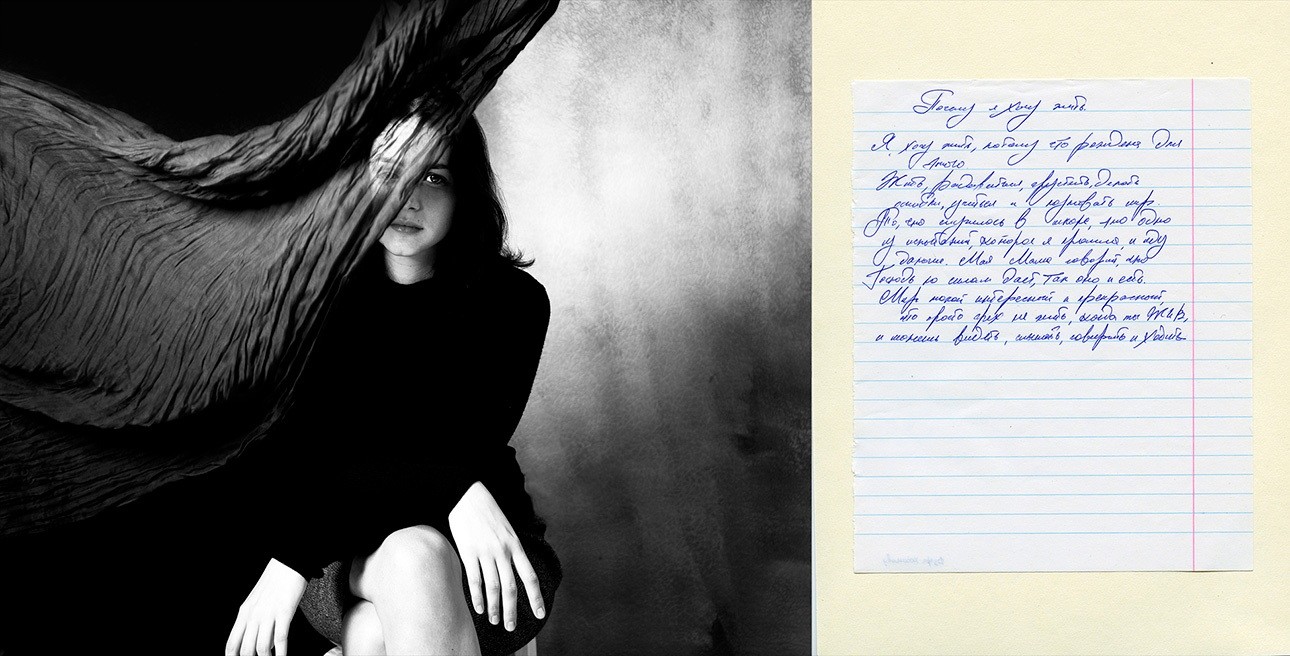 Почему я хочу жить.
Я хочу жить, потому что рождена для
этого
Жить, радоваться, грустить, делать
ошибки, учиться и познавать мир.
То, что случилось в школе, это одно
из испытаний, которое я прошла, и иду
дальше. Моя Мама говорит, что
Господь по силам даёт, так оно и есть.
Мир такой интересный и прекрасный,
что просто грех не жить, когда ты ЖИВ,
и можешь видеть, слышать, говорить и ходить.